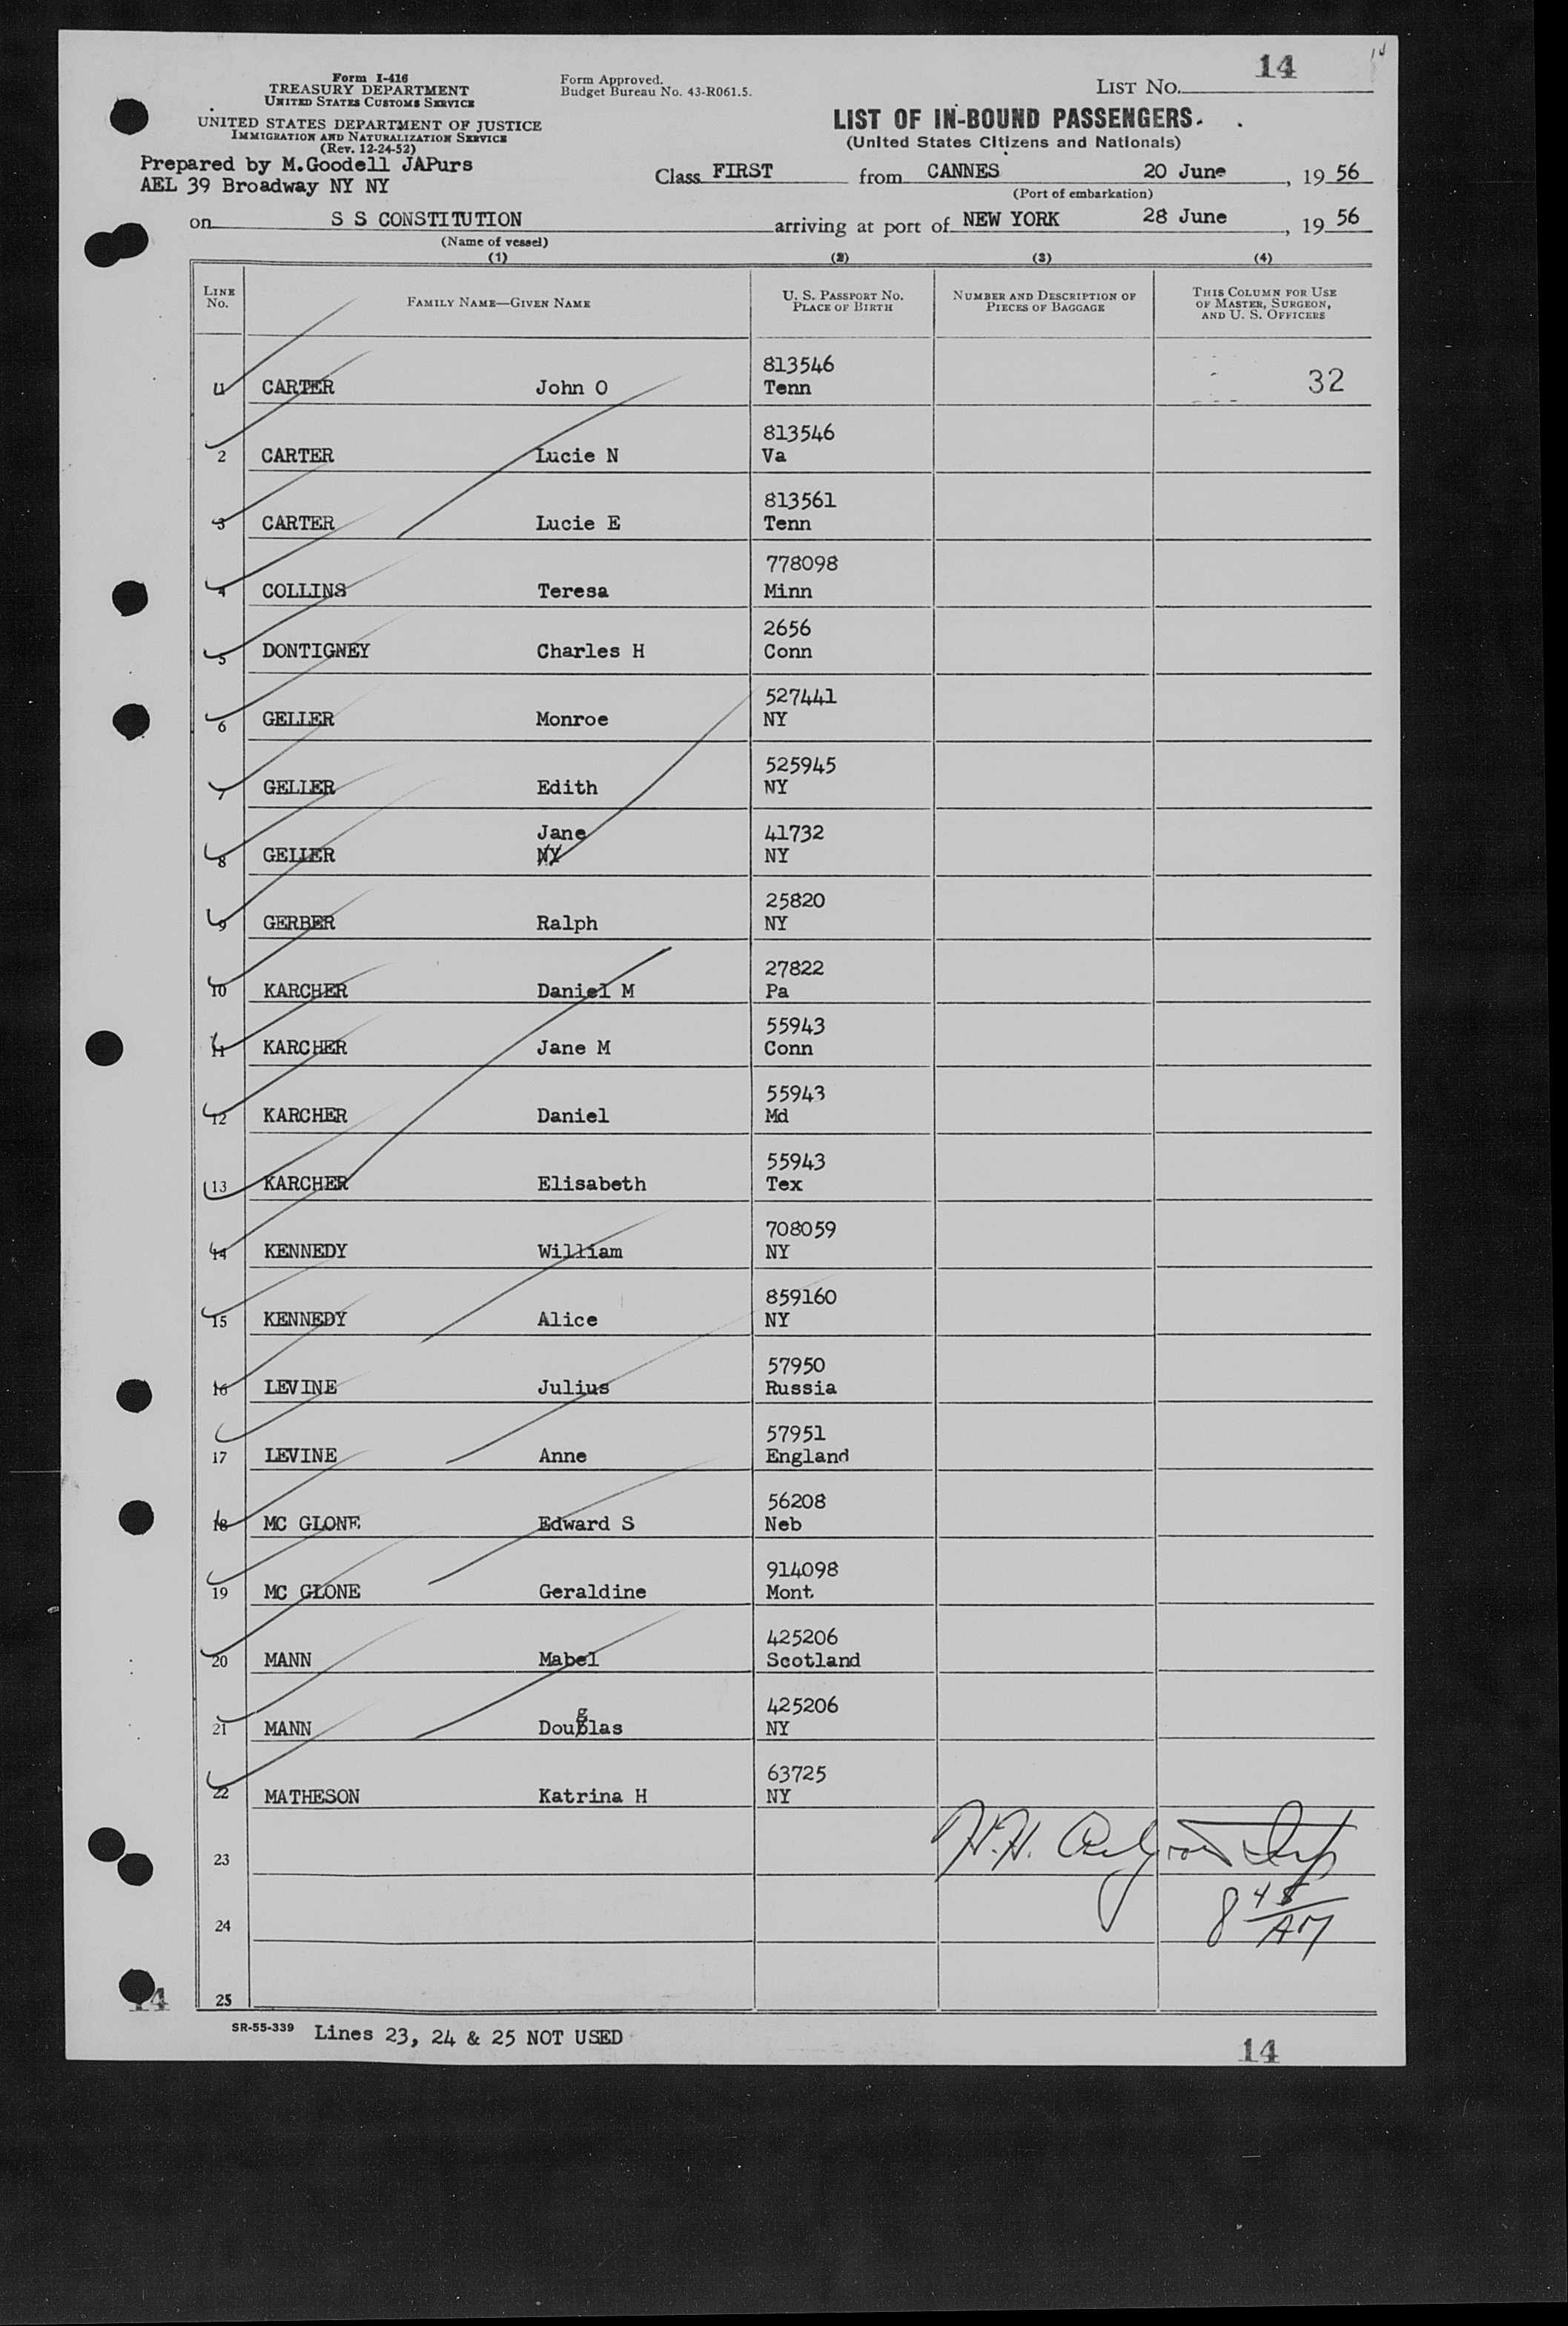 14
Form I-416
TREASURY DEPARTMENT
UNITED STATES CUSTOMS SERVICE
UNITED STATES DEPARTMENT OF JUSTICE
IMMIGRATION AND NATURALIZATION SERVICE
(Rev. 12-24-52)
Prepared by M.Goodell JAPurs
AEL 39 Broadway NY NY
Form Approved.
Budget Bureau No. 43-R061.5.
LIST NO. 14
LIST OF IN-BOUND PASSENGERS
(United States Citizens and Nationals)
Class FIRST from CANNES 20 June, 19 56
(Port of embarkation)
on S S CONSTITUTION arriving at port of NEW YORK 28 June, 19 56
(Name of vessel)
(1) (2) (3) (4)
LINE NO. FAMILY NAME—GIVEN NAME U. S. PASSPORT NO. PLACE OF BIRTH NUMBER AND DESCRIPTION OF PIECES OF BAGGAGE THIS COLUMN FOR USE OF MASTER, SURGEON, AND U. S. OFFICERS
813546
1 CARTER John O Tenn 32
813546
2 CARTER Lucie N Va
813561
3 CARTER Lucie E Tenn
778098
4 COLLINS Teresa Minn
2656
5 DONTIGNEY Charles H Conn
527441
6 GELLER Monroe NY
525945
7 GELLER Edith NY
Jane 41732
8 GELLER NY NY
25820
9 GERBER Ralph NY
27822
10 KARCHER Daniel M Pa
55943
11 KARCHER Jane M Conn
55943
12 KARCHER Daniel Md
55943
13 KARCHER Elisabeth Tex
708059
14 KENNEDY William NY
859160
15 KENNEDY Alice NY
57950
16 LEVINE Julius Russia
57951
17 LEVINE Anne England
56208
18 MC GLONE Edward S Neb
914098
19 MC GLONE Geraldine Mont
425206
20 MANN Mabel Scotland
425206
21 MANN Douglas NY
63725
22 MATHESON Katrina H NY
23 H.H.
24 8 45 AM
25
14
SR-55-339 Lines 23, 24 & 25 NOT USED
14